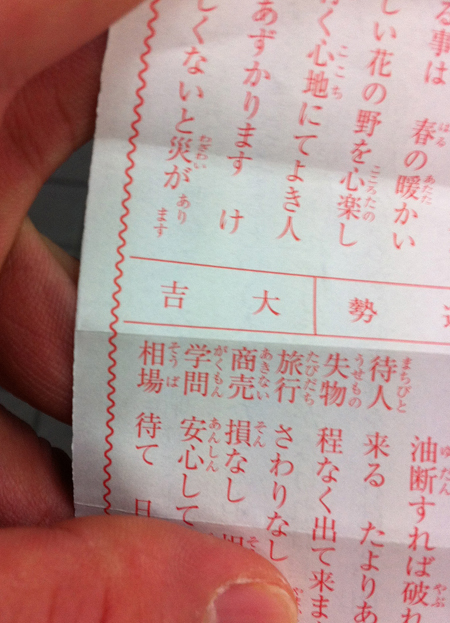 る事は 春の暖かい
しい花の野を心楽し
く心地にてよき人
あずかります け
しくないと災があります
勢
大吉
油断すれば破れ
待人 来る たよりあ
失物 程なく出て来ま
旅行 さわりなし
商売 損なし
学問 安心して
相場 待て